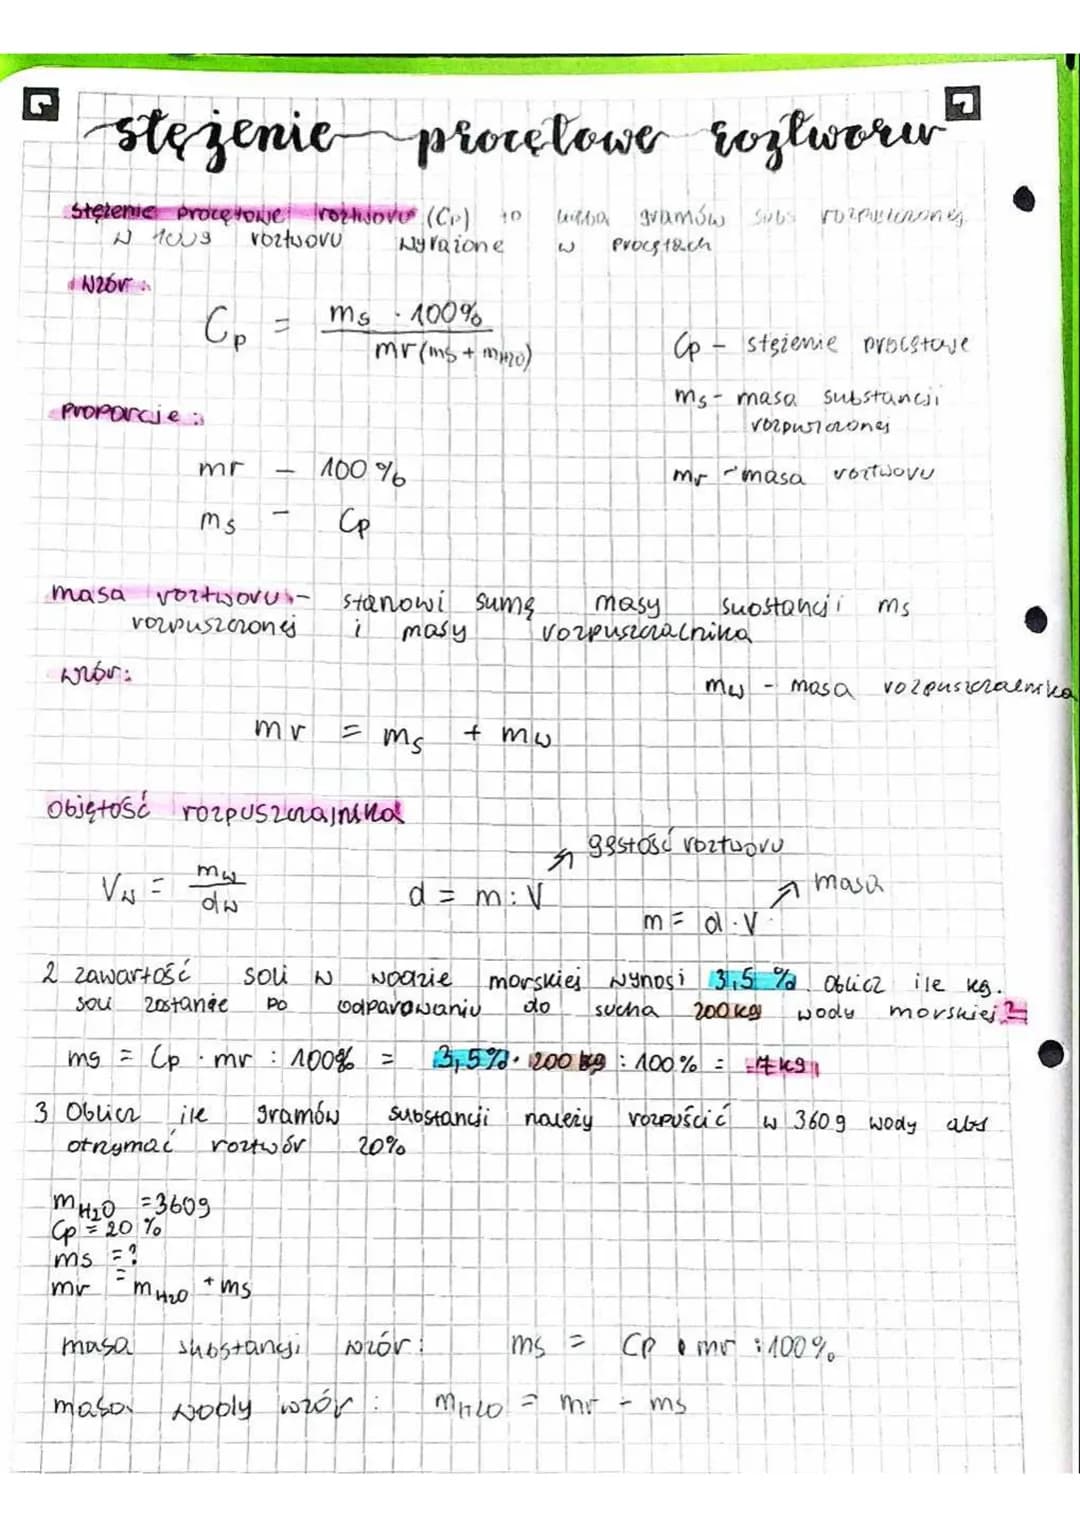 stężenie procętowe roztworu
stężenie procętowe roztworu (Cp) to liczba gramów subs rozpuszczonej
w 100g roztworu wyrażone w procętach
wzór:
Cp = ms · 100% / mr (ms + mH2O)
Cp - stężenie procętowe
ms - masa substancji
rozpuszczonej
proporcje:
mr - 100%
mr - masa roztworu
ms - Cp
masa roztworu - stanowi sumę masy substancji ms
rozpuszczonej i masy rozpuszczalnika
wzór:
mw - masa rozpuszczalnika
mr = ms + mw
Objętość rozpuszczajnika
gęstość roztworu
Vw = mw / dw
d = m : V
masa
m = d · V
2 zawartość soli w wodzie morskiej wynosi 3,5 %. Oblicz ile kg.
soli zostanie po odparowaniu do sucha 200 kg wody morskiej?
ms = Cp · mr : 100% = 3,5% · 200 kg : 100% = 7 kg
3 Oblicz ile gramów substancji należy rozpuścić w 360g wody aby
otrzymać roztwór 20%
mH2O = 360g
Cp = 20 %
ms = ?
mr = mH2O + ms
masa substancji wzór: ms = Cp • mr : 100%
masa wody wzór: mH2O = mr - ms